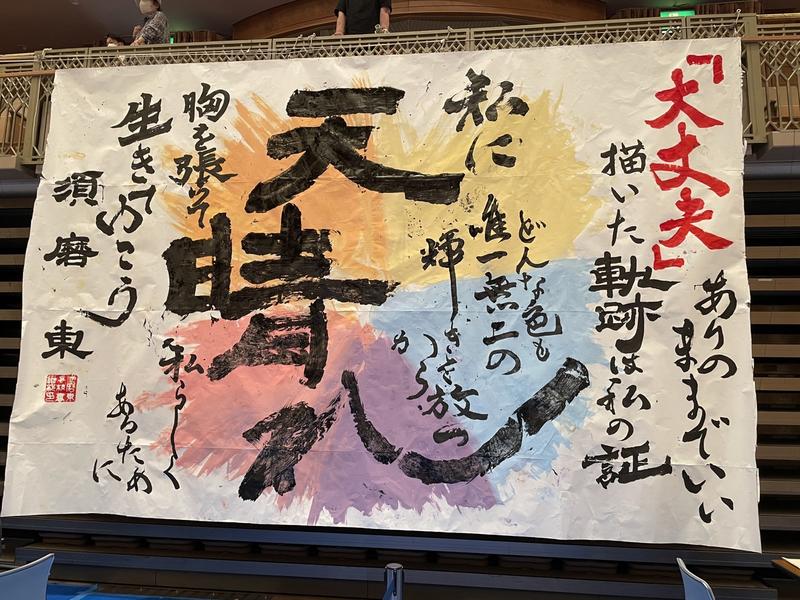 「大丈夫」
ありの
ままでいい
描いた軌跡は私の証
どんな色も
唯一無二の
輝きを放つ
から
私に
天晴れ
私らしく
あるため
に
胸を張って
生きてゆこう
須磨東